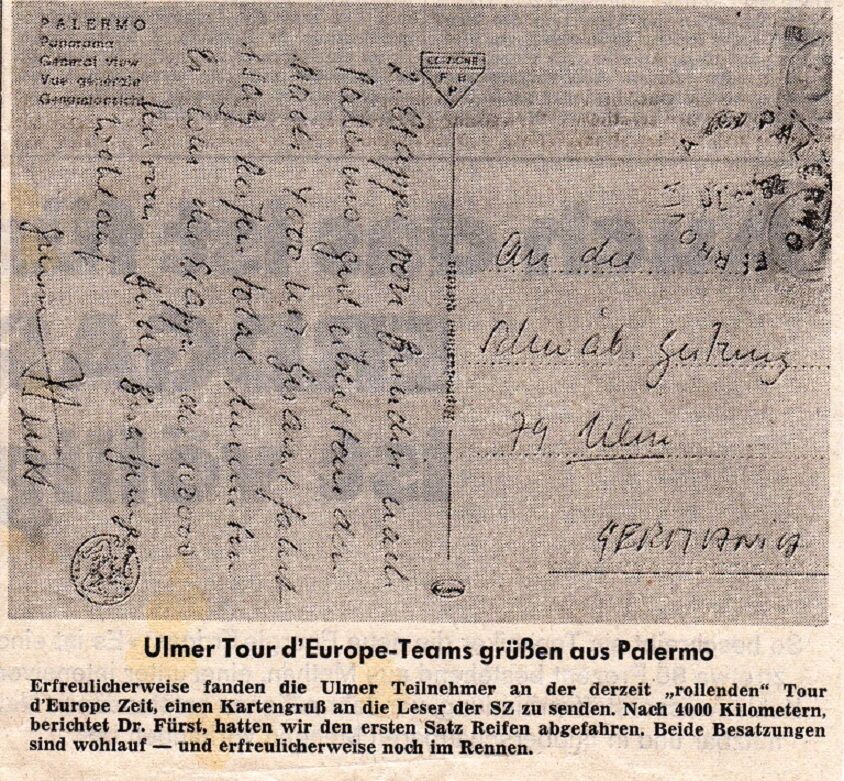 PALERMO
Panorama
General view
Vue générale
Generalansicht
EDIZIONE
2. Etappe von Brindisi nach
Palermo gut überstanden
Nach 4000 km Gesamtfahrt
1 Satz Reifen total
die Etappe
Beide Besatzungen
wohlauf
PALERMO
FERROVIA
An die
Schwäb. Zeitung
79 Ulm
GERMANIA
Ulmer Tour d'Europe-Teams grüßen aus Palermo
Erfreulicherweise fanden die Ulmer Teilnehmer an der derzeit „rollenden“ Tour
d'Europe Zeit, einen Kartengruß an die Leser der SZ zu senden. Nach 4000 Kilometern,
berichtet Dr. Fürst, hatten wir den ersten Satz Reifen abgefahren. Beide Besatzungen
sind wohlauf — und erfreulicherweise noch im Rennen.